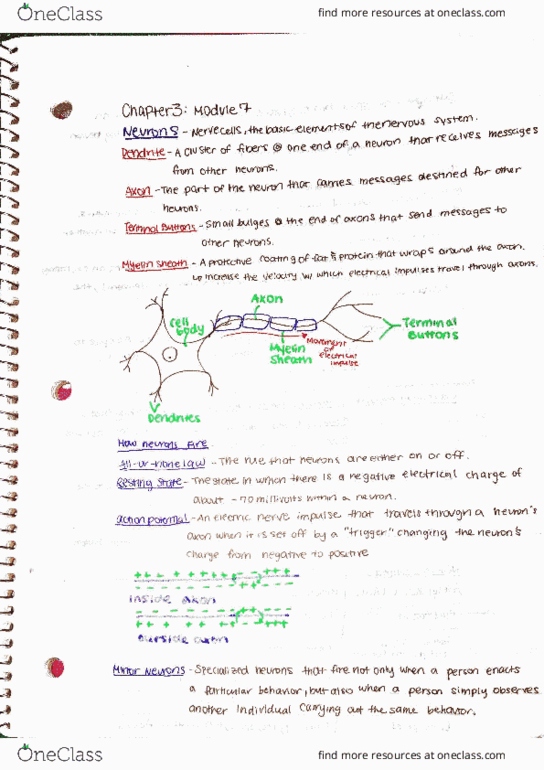 OneClass
find more resources at oneclass.com
Chapter 3: Module 7
Neurons - Nerve cells, the basic elements of the nervous system.
Dendrite - A cluster of fibers @ one end of a neuron that receives messages
from other neurons.
Axon - The part of the neuron that carries messages destined for other
neurons.
Terminal Buttons - Small bulges @ the end of axons that send messages to
other neurons.
Myelin Sheath - A protective coating of fat & protein that wraps around the axon.
↳ increase the velocity w/ which electrical impulses travel through axons.
Axon
Cell
body
Terminal
Buttons
Myelin
Sheath
Movement
of
electrical
impulse
Dendrites
How neurons Fire
All-or-none law - The rule that neurons are either on or off.
Resting State - The state in which there is a negative electrical charge of
about -70 millivolts within a neuron.
action potential - An electric nerve impulse that travels through a neuron's
axon when it is set off by a "trigger" changing the neuron's
charge from negative to positive
inside axon
outside axon
Mirror Neurons - Specialized neurons that fire not only when a person enacts
a particular behavior, but also when a person simply observes
another individual carrying out the same behavior.
OneClass
find more resources at oneclass.com